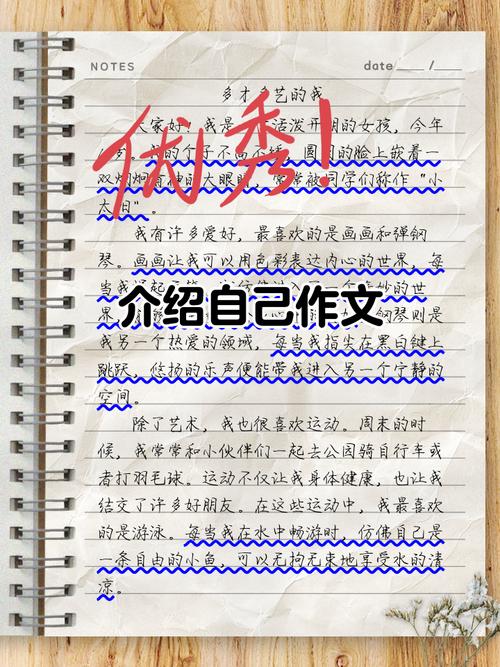 NOTES
date ____ / ____
多才多艺的我
优秀!
大家好！我是 活泼开朗的女孩，今年
的个子不高不矮，圆圆的脸上嵌着一
双炯炯有神的大眼睛，常常被同学们称作“小
太阳”。
我有许多爱好，最喜欢的是画画和弹钢
琴。画画让我可以用色彩表达内心的世界，每
当我 的世
介绍自己作文
界 钢琴则是
我另一个热爱的领域，每当我指尖在黑白键上
跳跃，悠扬的乐声便能带我进入另一个宁静的
空间。
除了艺术，我也很喜欢运动。周末的时
候，我常常和小伙伴们一起去公园骑自行车或
者打羽毛球。运动不仅让我身体健康，也让我
结交了许多好朋友。在这些运动中，我最喜欢
的是游泳。每当我在水中畅游时，仿佛自己是
一条自由的小鱼，可以无拘无束地享受水的清
凉。